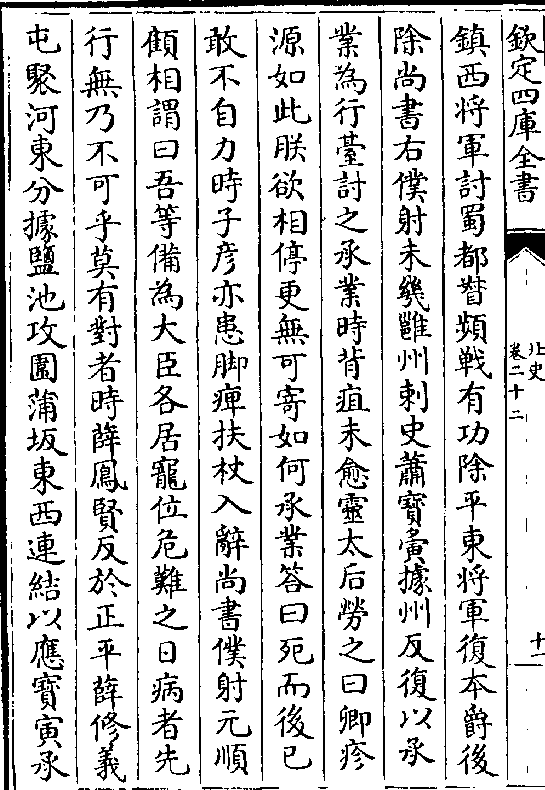 欽定四庫全書
北史
卷二十二
十一
鎮西將軍討蜀都督頻戰有功除平東將軍復本爵後
除尚書右僕射未幾雝州刺史蕭寶夤據州反復以承
業為行臺討之承業時背疽未愈靈太后勞之曰卿疹
源如此朕欲相停更無可寄如何承業答曰死而後已
敢不自力時子彦亦患脚痺扶杖入辭尚書僕射元順
顧相謂曰吾等備為大臣各居寵位危難之日病者先
行無乃不可乎莫有對者時薛鳳賢反於正平薛修義
屯聚河東分據鹽池攻圍蒲坂東西連結以應寶寅承